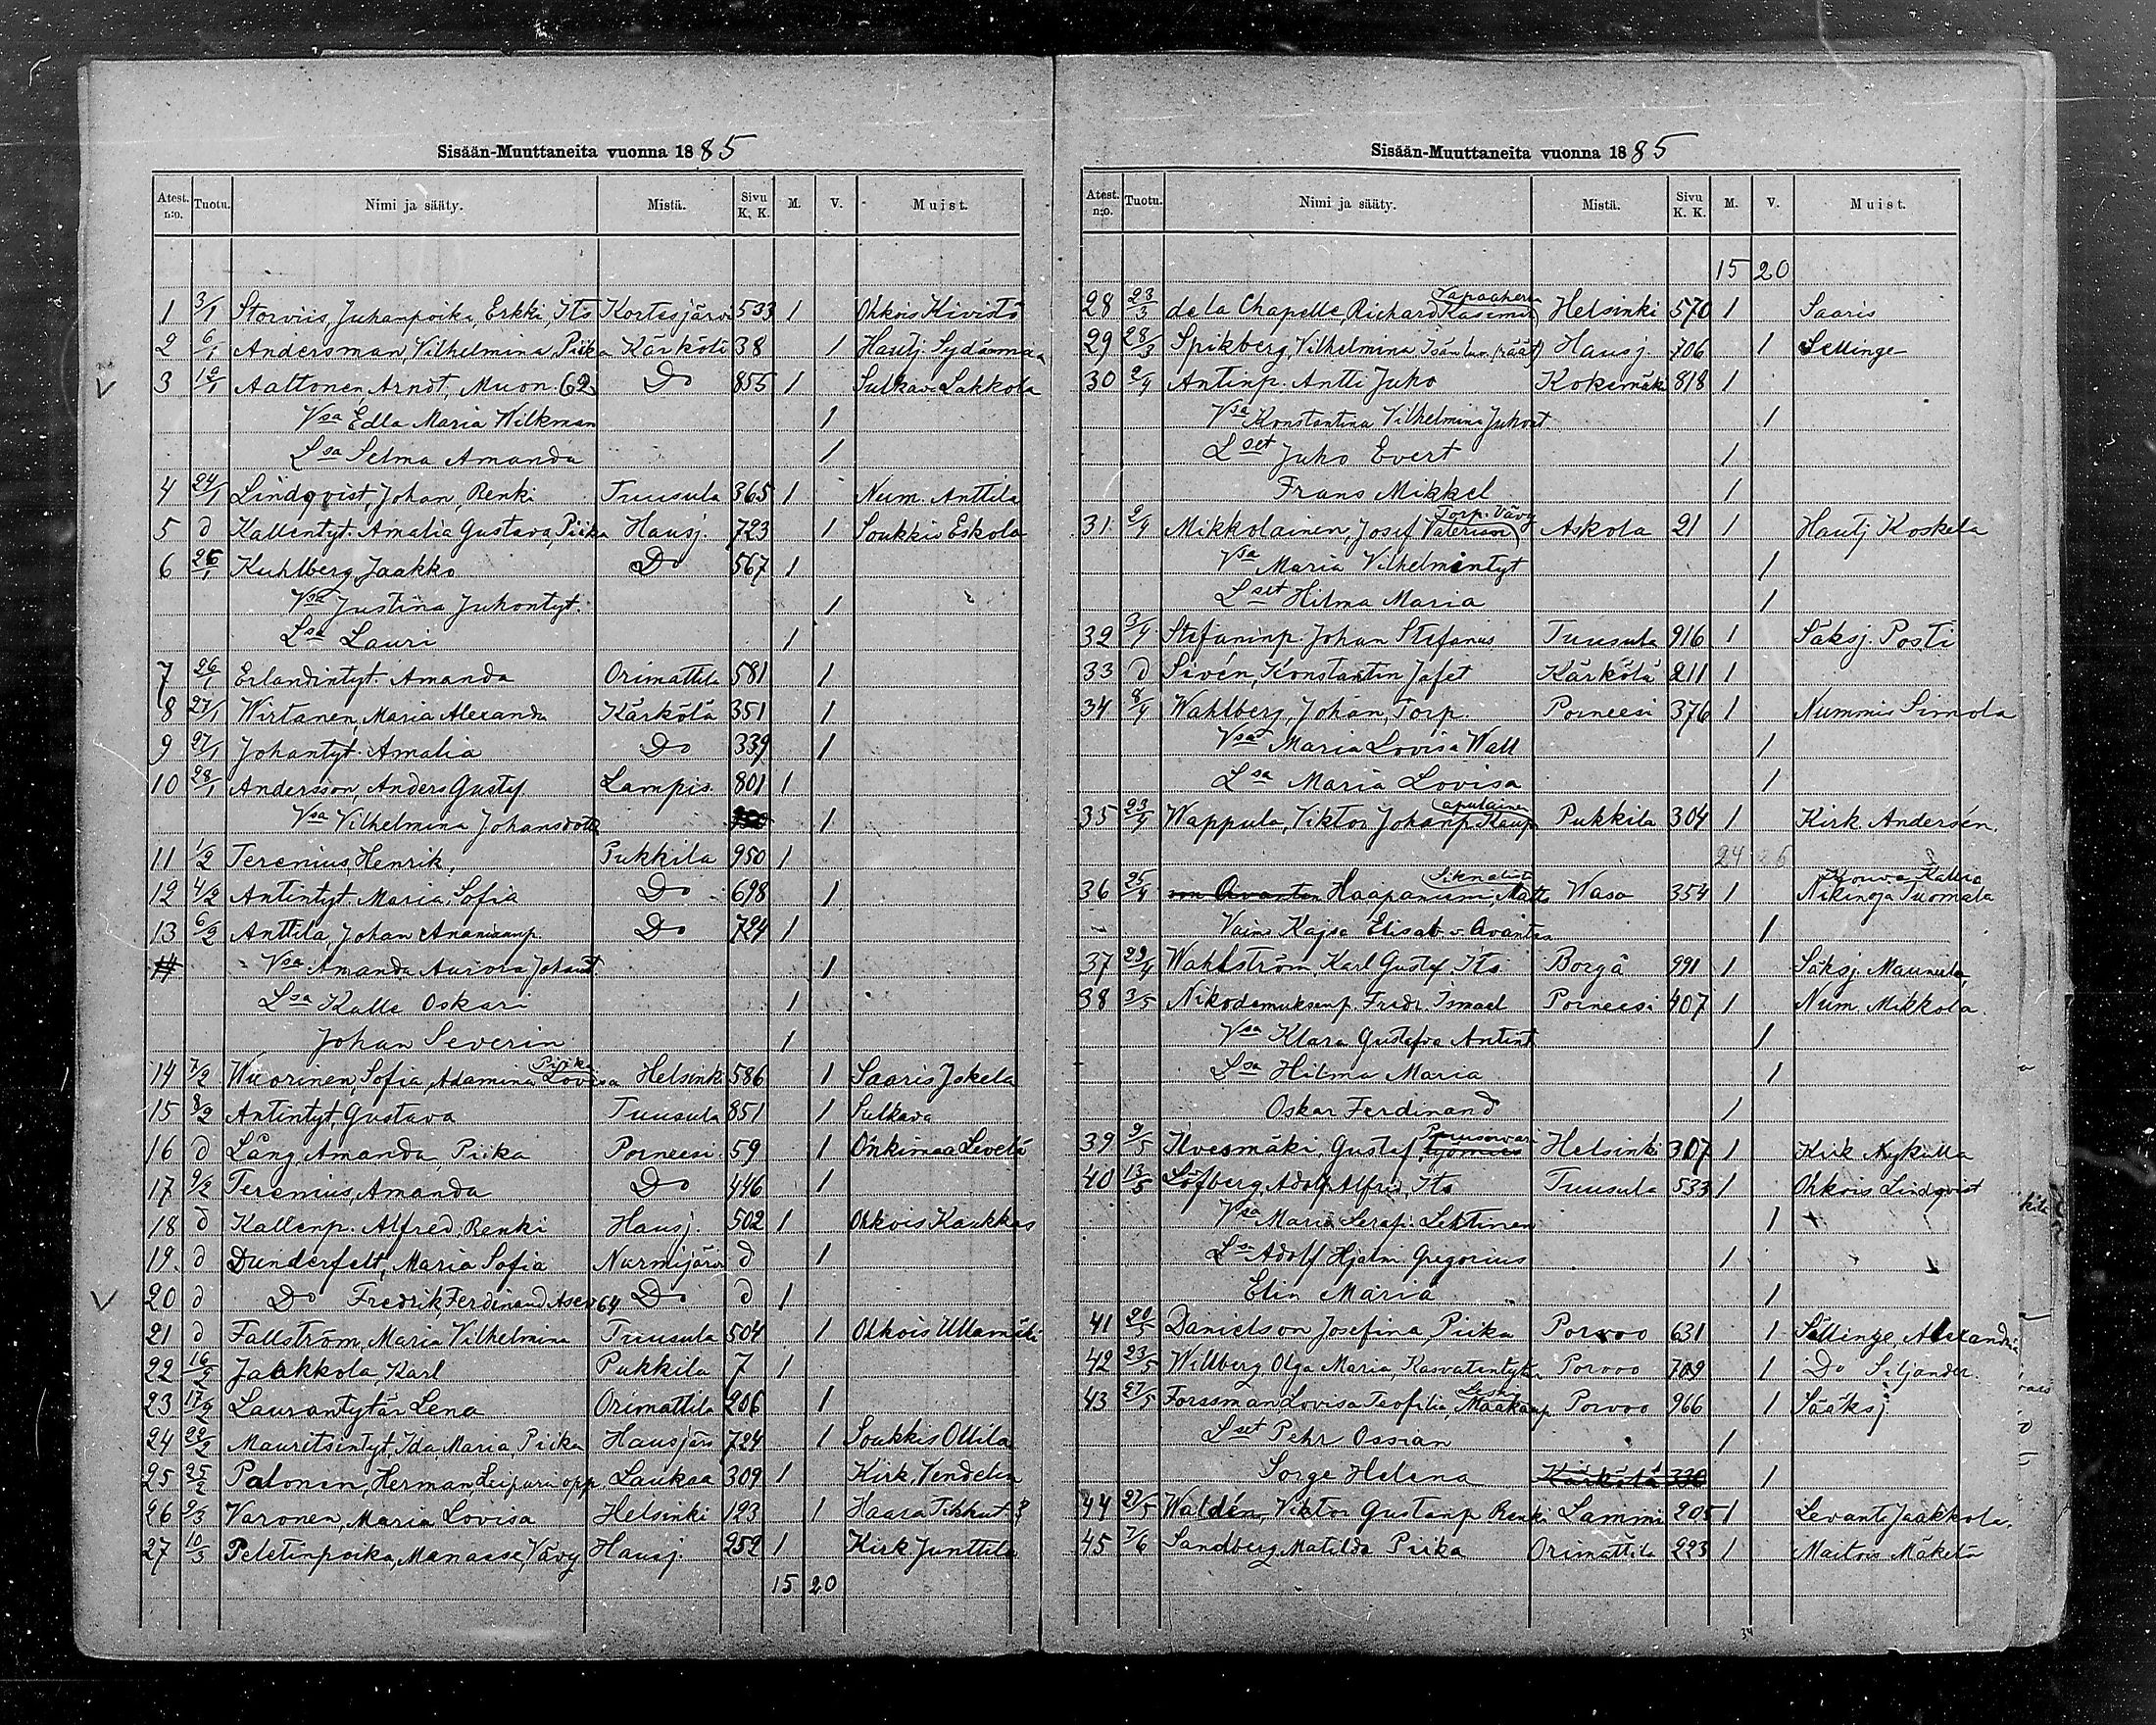 Sisään-Muuttaneita vuonna 1885
Atest. n:o. Tuotu. Nimi ja sääty. Mistä. Sivu K. K. M. V. Muist.
1 3/1 Storviis, Juhanpoika, Erkki, Its Kortesjärvi 533 1 Ohkois Kivistö
2 6/1 Andersman, Vilhelmina, Piika Kärkölä 38 1 Hautj Sydänmaa
3 12/1 Aaltonen, Arndt, Muon. 62 Do 855 1 Sulkava Lakkola
Vsa Edla Maria Wilkman 1
Lsa Selma Amanda 1
4 24/1 Lindqvist, Johan, Renki Tuusula 365 1 Num. Anttila
5 d Kallentyt. Amalia Gustava, Piika Hausj. 723 1 Soukkis Eskola
6 26/1 Kuhlberg, Jaakko Do 567 1
Vsa Justina Juhontyt. 1
Lsa Lauri 1
7 26/1 Erlandintyt. Amanda Orimattila 581 1
8 27/1 Wirtanen, Maria Alexandr Kärkölä 351 1
9 27/1 Johantyt. Amalia Do 339 1
10 28/1 Andersson, Anders Gustaf Lampis. 801 1
Vsa Vilhelmina Johansdotter 1
11 1/2 Terenius, Henrik, Pukkila 950 1
12 4/2 Antintyt. Maria Sofia Do 698 1
13 6/2 Anttila, Johan Ananianp. Do 724 1
Vsa Amanda Aurora Johant 1
Lsa Kalle Oskari 1
Johan Severin 1
14 7/2 Wuorinen, Sofia, Adamina Lovisa Piika Helsink 586 1 Saaris Jokela
15 8/2 Antintyt, Gustava Tuusula 851 1 Sulkava
16 d Lång, Amanda, Piika Porneesi 59 1 Onkimaa Levelä
17 9/2 Terenius, Amanda Do 446 1
18 d Kallenp. Alfred, Renki Hausj. 502 1 Ohkois Kaukkas
19. d Dunderfelt, Maria Sofia Nurmijärvi d 1
20 d Do Fredrik Ferdinand Asev 64 Do d 1
21 d Fallström, Maria Vilhelmina Tuusula 504 1 Ohkois Ullamäki
22 16/2 Jaakkola, Karl Pukkila 7 1
23 17/2 Laurantytär Lena Orimattila 206 1
24 22/2 Mauritsintyt, Ida, Maria, Piika Hausjärv 724 1 Soukkis Ollila
25 25/2 Palonen, Herman Leipuri opp. Laukaa 309 1 Kirk, Vendelin
26 9/3 Varonen, Maria Lovisa Helsinki 123 1 Haara Tihkut
27 10/3 Peletinpoika, Manasse, Vävy Hausj. 252 1 Kirk Junttila
15 20
Sisään-Muuttaneita vuonna 1885
Atest. n:o. Tuotu. Nimi ja sääty. Mistä. Sivu K. K. M. V. Muist.
15 20
28 23/3 de la Chapelle, Richard Kasimir Vapaaherra Helsinki 570 1 Saaris
29 28/3 Spikberg, Vilhelmina Hausj. 706 1 Sellinge
30 2/4 Antinp. Antti Juho Kokemäki 818 1
Vsa Konstantina Vilhelmina Juhont 1
Lset Juho Evert 1
Frans Mikkel 1
31 2/4 Mikkolainen, Josef Valerisson Torp. Vävy Askola 21 1 Hautj Koskela
Vsa Maria Vilhelmintyt 1
Lset Hilma Maria 1
32 3/4 Stefaninp. Johan Stefanus Tuusula 916 1 Säksj. Posti
33 d Sivén, Konstantin Jafet Kärkölä 211 1
34 8/4 Wahlberg, Johan, Torp. Porneesi 376 1 Nummis Simola
Vsa Maria Lovisa Wall 1
Lsa Maria Lovisa 1
35 23/4 Wappula, Viktor Johanp. Kaup apulainen Pukkila 304 1 Kirk Andersén.
24 26
36 25/4 von Qvanten Haapaniemi, Matts Wasa 354 1 Nikinoja Tuomala
Vaimo Kajsa Elisab. v. Qvanten 1
37 29/4 Wahlström, Karl Gustaf, Its Borgå 991 1 Säksj. Maunula
38 3/5 Nikodemuksenp. Fredr. Ismael Porneesi 407 1 Num. Mikkola
Vsa Klara Gustafva Antint 1
Lsa Hilma Maria 1
Oskar Ferdinand 1
39 9/5 Ilvesmäki, Gustaf, työmies Puuseppä Helsinki 307 1 Kirk Nykulla
40 13/5 Löfberg, Adolf Alfred, Its Tuusula 533 1 Ohkois Lindqvist
Vsa Maria Serafi. Lehtinen 1
Lsa Adolf Hjalm. Gregorius 1
Elin Maria 1
41 20/5 Danielson Josefina, Piika Porvoo 631 1 Sällinge, Alexandra
42 23/5 Willberg, Olga Maria, Kasvatintytär Porvoo 709 1 Do Siljander.
43 27/5 Forssman Lovisa Teofilia, Maakaup Leski Porvoo 966 1 Sääksj
Lset Pehr Ossian 1
Sorge Helena Kärkölä 330 1
44 27/5 Waldén, Viktor Gustanp Renki Lammi 205 1 Levanto Jaakkola.
45 7/6 Sandberg, Matilda Piika Orimattila 223 1 Maitois Mäkelä
34